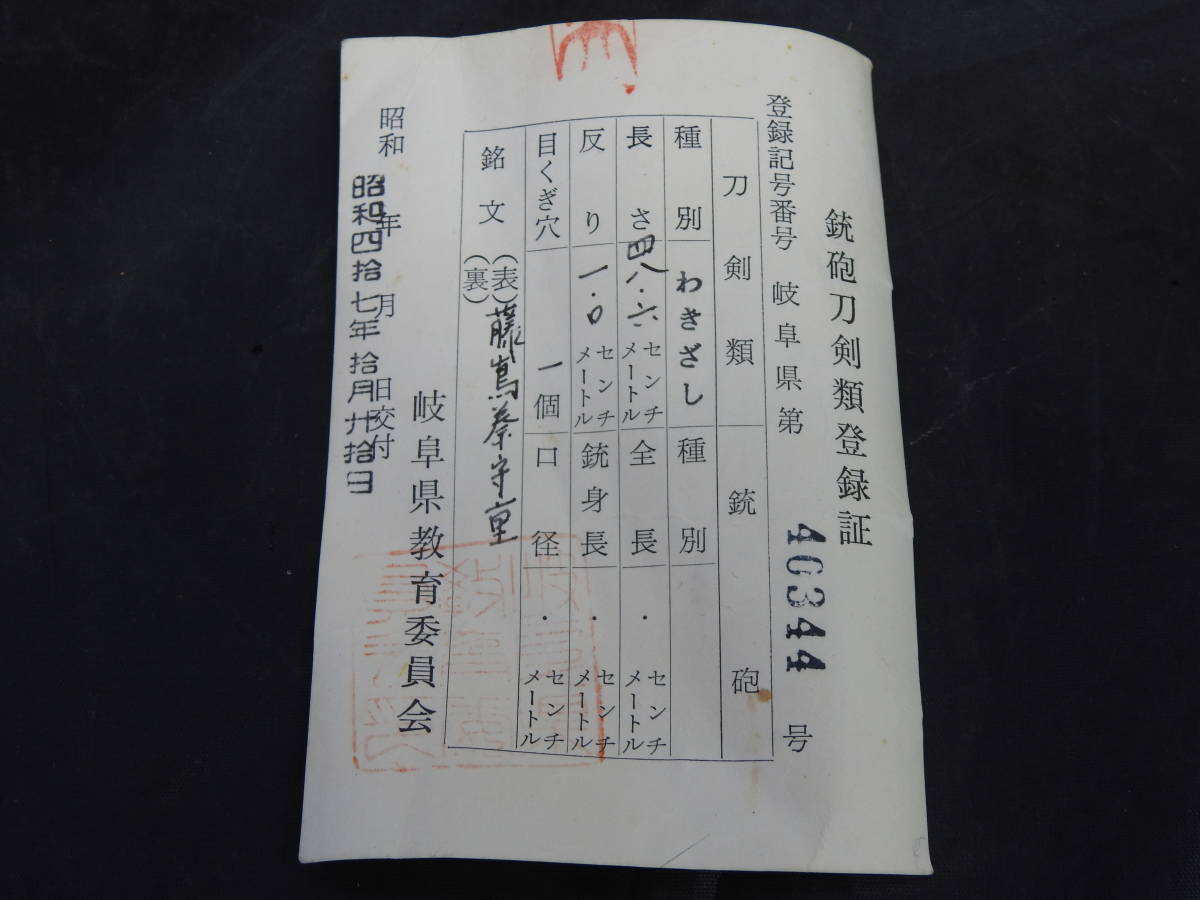 銃砲刀剣類登録証
登録記号番号 岐阜県第 40344 号
刀剣類 銃砲
種別 わきざし 種別
長さ 四八・六センチメートル 全長 ・ センチメートル
反り 一・〇センチメートル 銃身長 ・ センチメートル
目くぎ穴 一個 口径 ・ センチメートル
銘文 (表) 藤嶌
(裏)
岐阜県教育委員会
昭和 年 月 日交付
昭和四拾七年拾月廾拾日